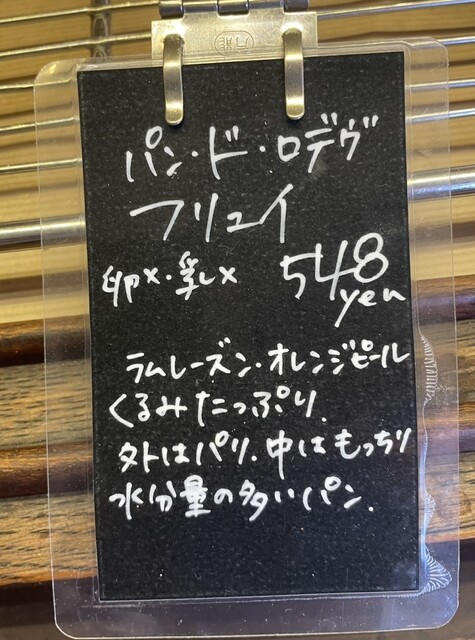 パン・ド・ロデヴ
フリュイ
卵×・乳×
548
yen
ラムレーズン・オレンジピール
くるみたっぷり.
外はパリ.中はもっちり
水分量の多いパン.